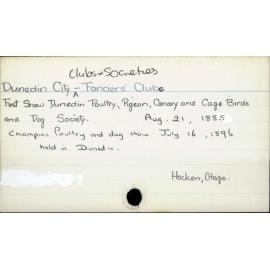 Clubs & Societies
Dunedin City - Fanciers' Club.
First Show Dunedin Poultry, Pigeon, Canary and Cage Birds
and Dog Society. Aug. 21, 1885
Champion Poultry and dog show July 16, 1896
held in Dunedin.
Hocken, Otago.